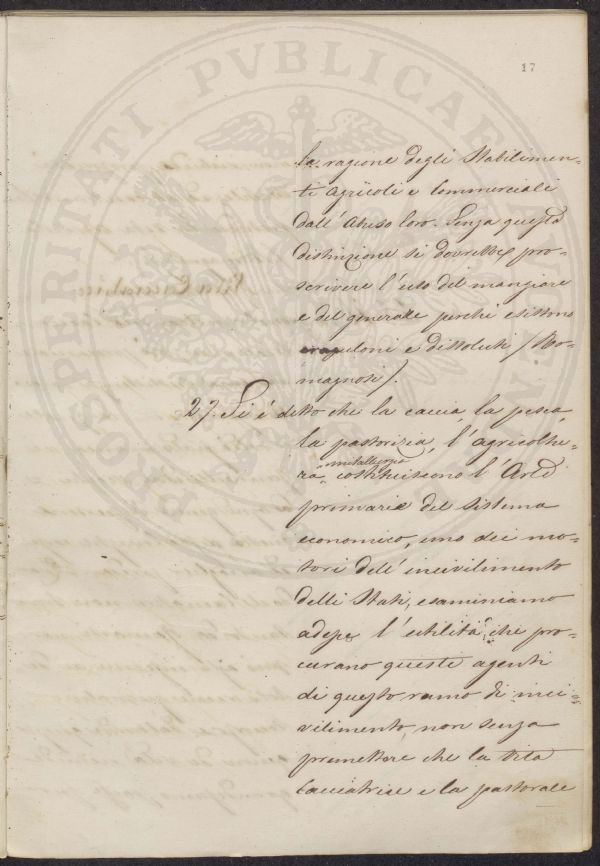 PROSPERITATI PVBLICAE
17
la ragione degli Stabilimen=
ti agricoli e commerciali
dall'Abuso loro. Senza questa
distinzione si dovrebbe pro=
scrivere l'uso del mangiare
e del generale perchè esistono
crapuloni e dissoluti (Ro=
magnosi).
27. Si è detto che la caccia, la pesca,
la pastorizia, l'agricoltu=
metallurgia
ra costituiscono l'Arti
primarie del sistema
economico, uno dei mo=
tori dell'incivilimento
delli Stati, esaminiamo
adesso l'utilità che pro=
curano questi agenti
di questo ramo di inci=
vilimento, non senza
premettere che la vita
Cacciatrice e la pastorale